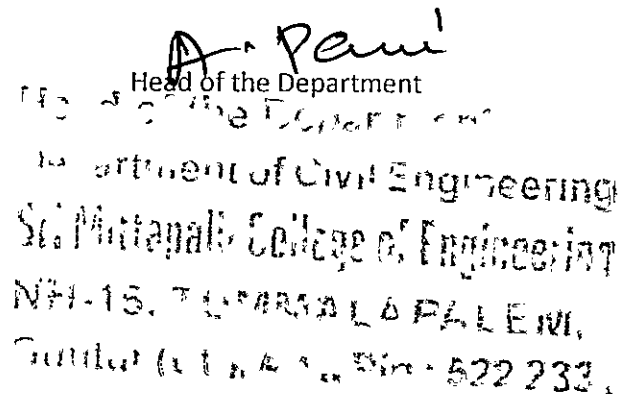 A. Pani
Head of the Department
Head of the Department
Department of Civil Engineering
Sri Mittapalli College of Engineering
NH-16, TUMMALAPALEM,
Guntur Pin: 522 233.